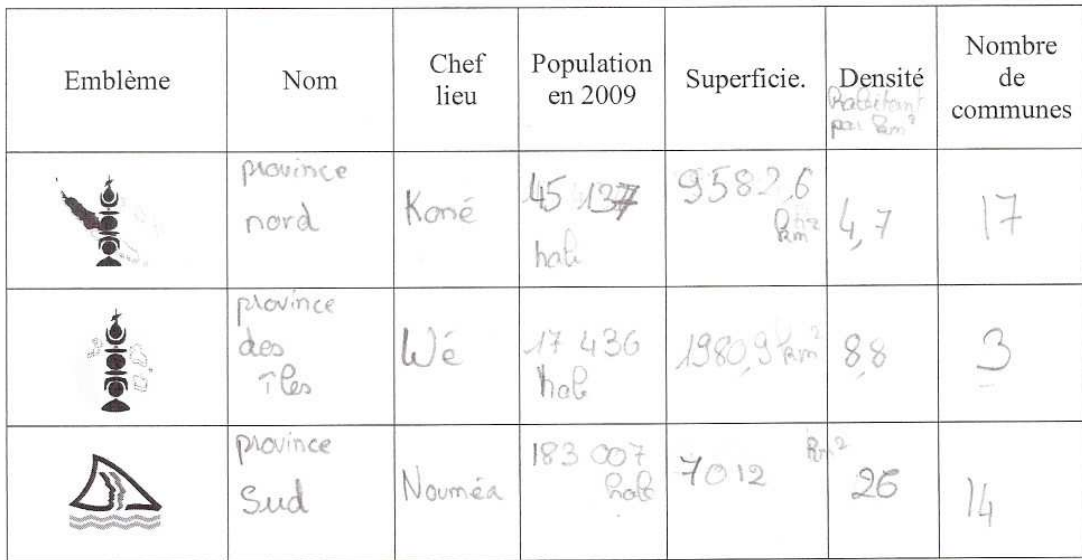 Emblème Nom Chef lieu Population en 2009 Superficie. Densité habitant par km² Nombre de communes
province nord Koné 45 137 hab 9582,6 km² 4,7 17
province des îles Wé 17 436 hab 1980,9 km² 8,8 3
province Sud Nouméa 183 007 hab 7012 km² 26 14